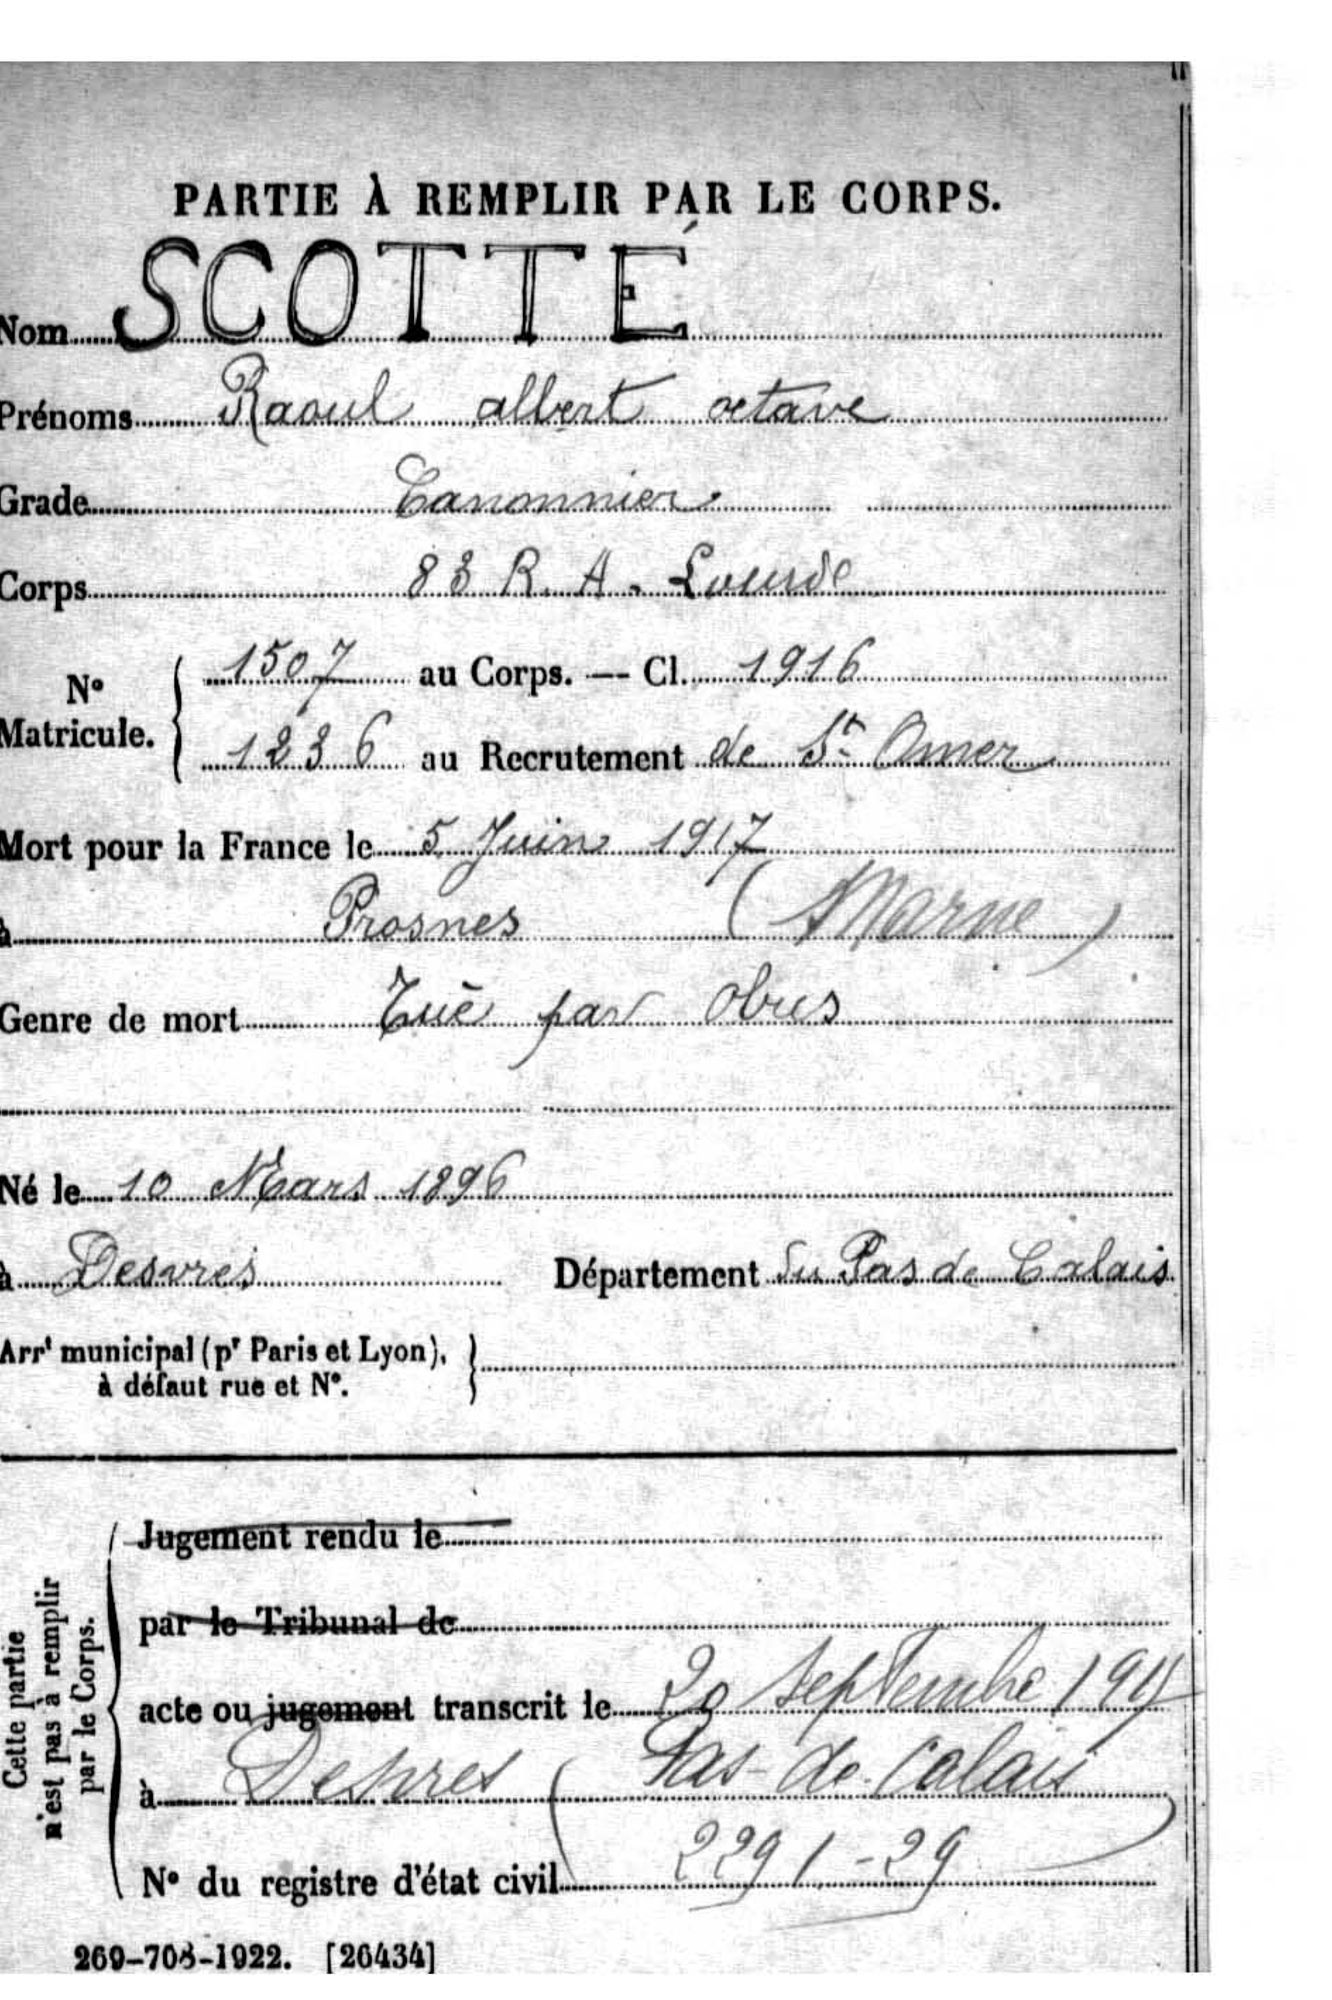 PARTIE À REMPLIR PAR LE CORPS.
Nom SCOTTÉ
Prénoms Raoul albert octave
Grade Canonnier
Corps 83 R. A. Lourde
N° Matricule. { 1507 au Corps. — Cl. 1916
1236 au Recrutement de St Omer
Mort pour la France le 5 Juin 1917
à Prosnes (Marne)
Genre de mort Tué par Obus
Né le 10 Mars 1896
à Desvres Département du Pas de Calais
Arrt municipal (pr Paris et Lyon), }
à défaut rue et N°.
Cette partie
n'est pas à remplir
par le Corps.
Jugement rendu le
par le Tribunal de
acte ou jugement transcrit le 20 septembre 1917
à Desvres (Pas-de-Calais)
N° du registre d'état civil 2291-29
269-708-1922. [26434]